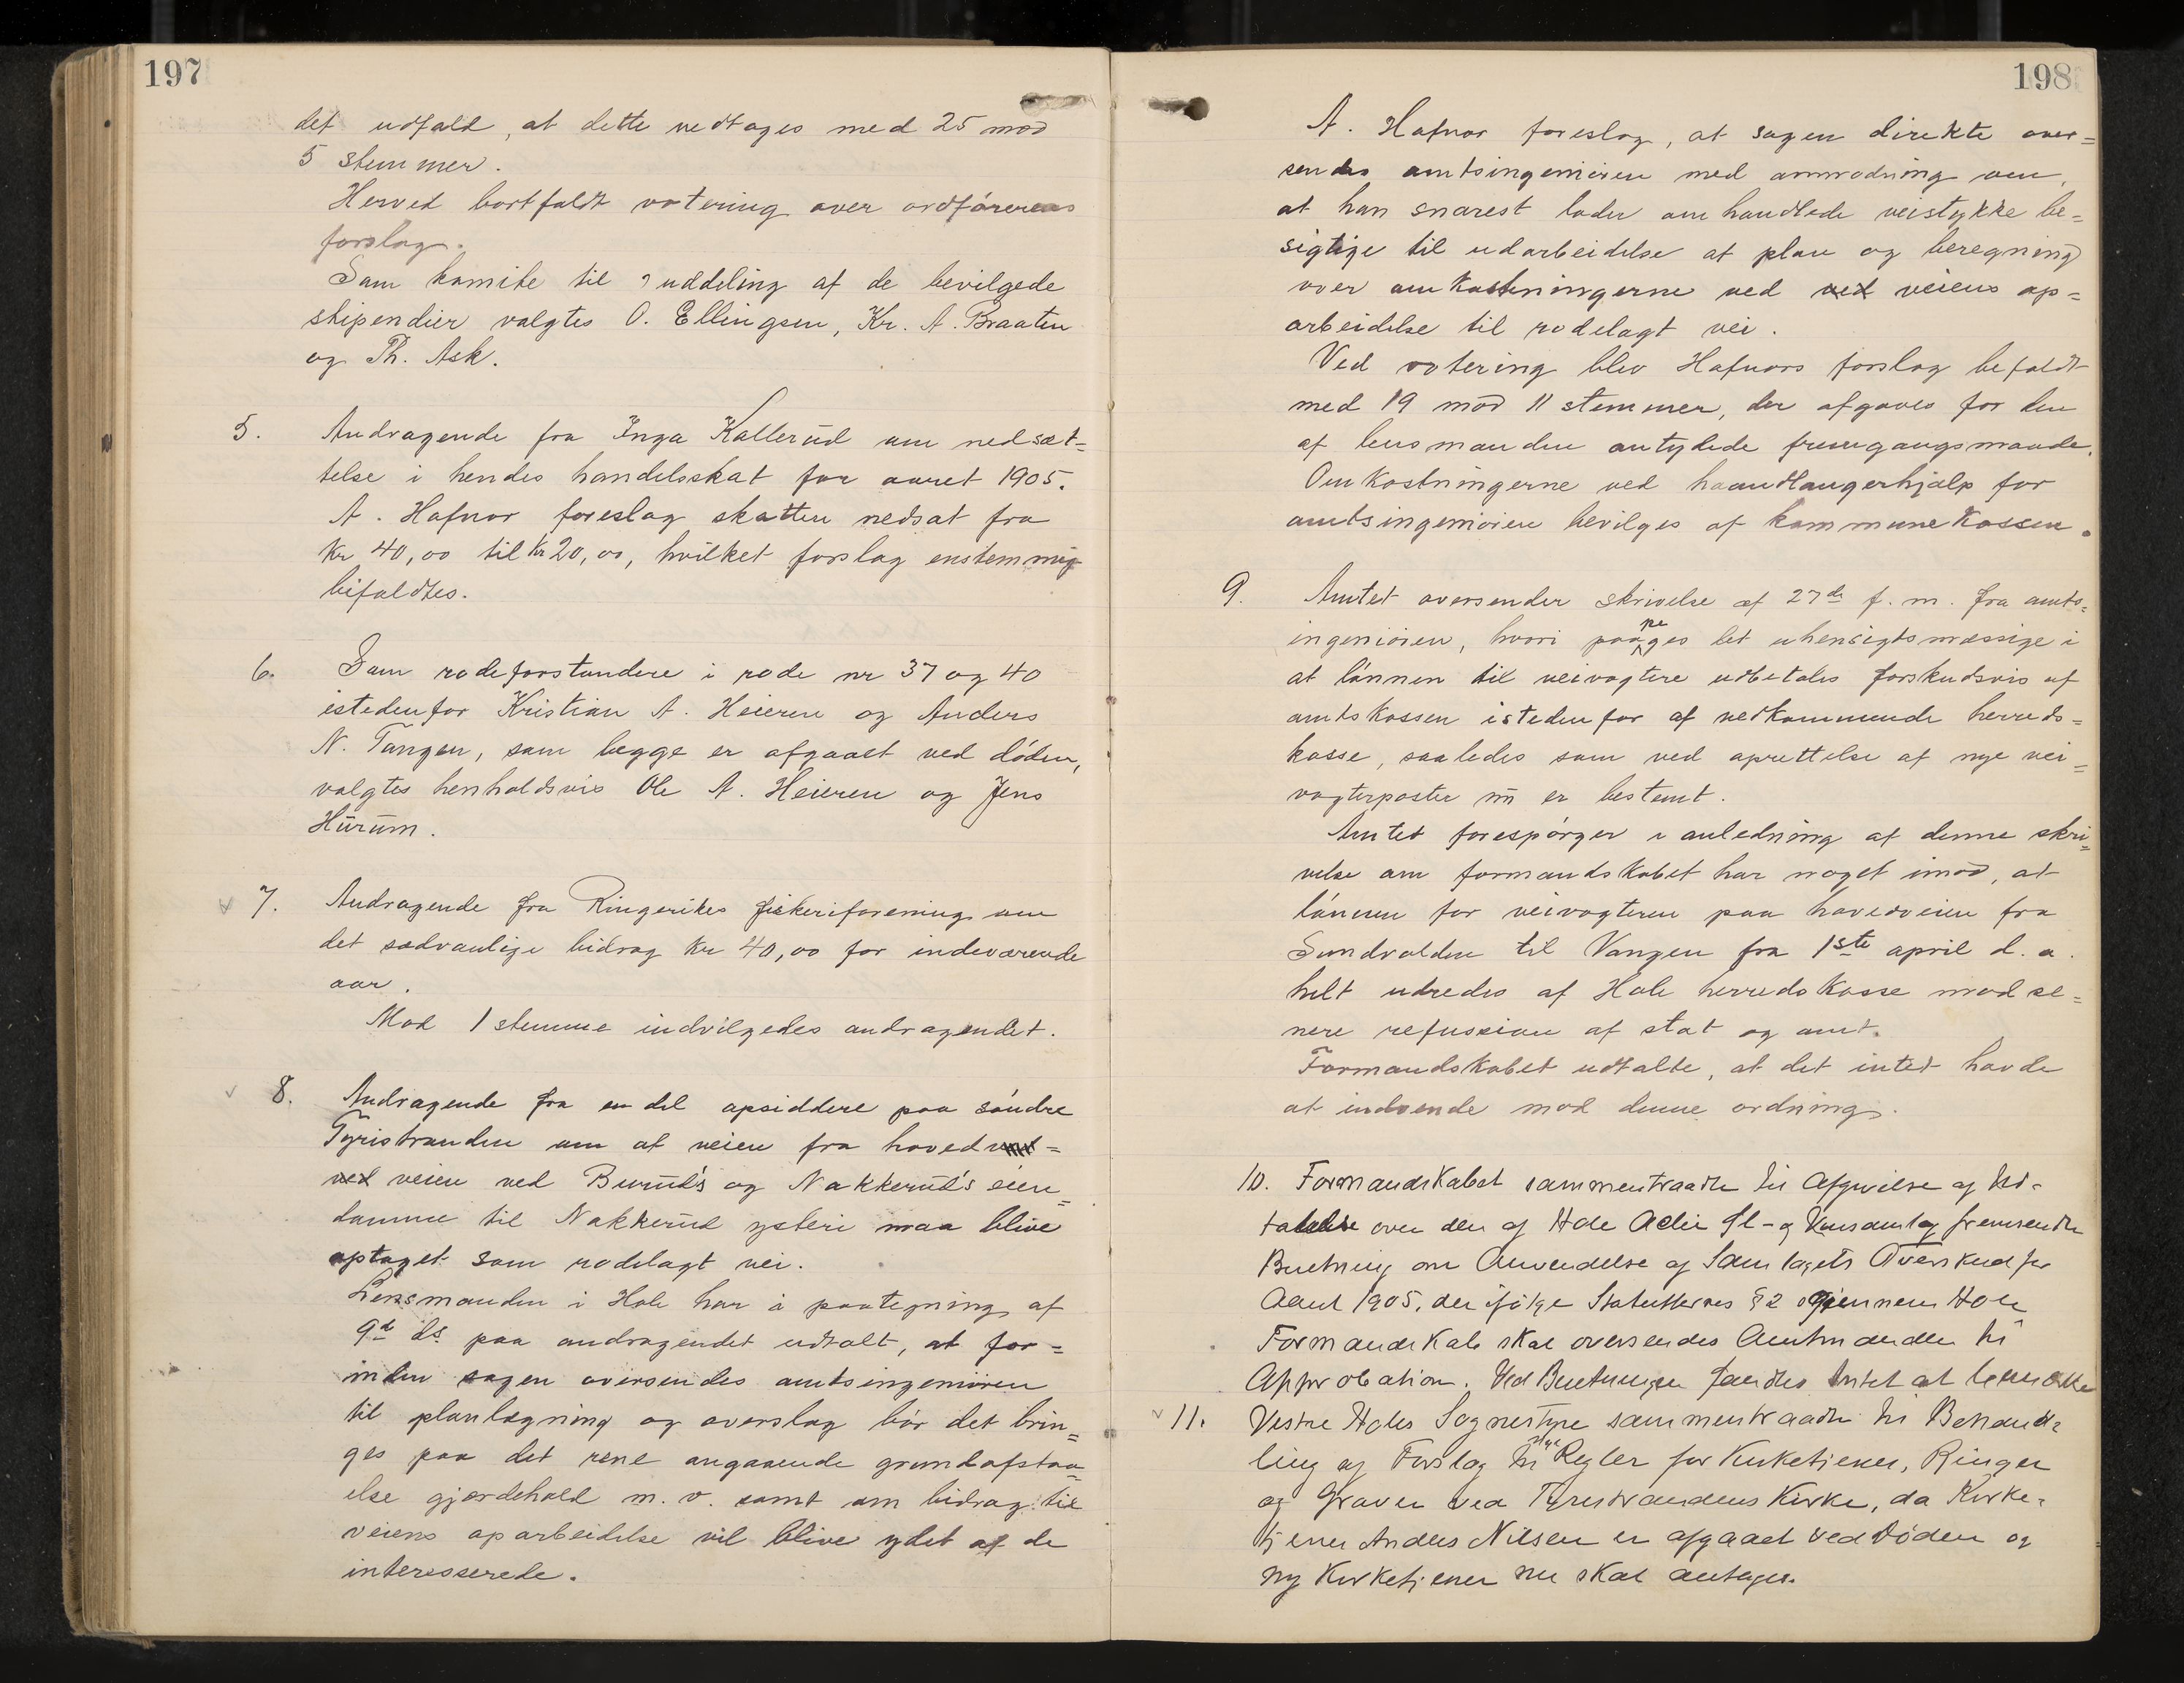 197
det udfald, at dette vedtages med 25 mod
5 stemmer.
Herved bortfaldt votering over ordførerens
forslag.
Som komite til uddeling af de bevilgede
stipendier valgtes O. Ellingsen, Kr. A. Braaten
og Th. Ask.
5. Andragende fra Inga Kallerud om nedsæt=
telse i hendes handelsskat for aaret 1905.
A. Hafnor foreslog skatten nedsat fra
Kr 40,00 til Kr 20,00, hvilket forslag enstemmig
bifaldtes.
6. Som rodeforstandere i rode nr 37 og 40
istedenfor Kristian A. Heieren og Anders
N. Tangen, som begge er afgaaet ved døden,
valgtes henholdsvis Ole A. Heieren og Jens
Hurum.
7. Andragende fra Ringerikes fiskeriforening om
det sædvanlige bidrag Kr 40,00 for indeværende
aar.
Mod 1 stemme indvilgedes andragendet.
8. Andragende fra en del opsiddere paa søndre
Tyristranden om at veien fra hoved=
ved veien ved Buruds og Nakkerud's eien=
domme til Nakkerud ysteri maa blive
optaget som rodelagt vei.
Lensmanden i Hole har i paategning af
9d ds. paa andragendet udtalt, at for=
inden sagen oversendes amtsingeniøren
til planlægning og overslag bør det brin=
ges paa det rene angaaende grundafstaa=
else gjærdehold m. v. samt om bidrag til
veiens oparbeidelse vil blive ydet af de
interesserede.
198
A. Hafnor foreslog, at sagen direkte over=
sendes amtsingeniøren med anmodning om,
at han snarest lader omhandlede veistykke be=
sigtige til udarbeidelse af plan og beregning
over omkostningerne ved ved veiens op=
arbeidelse til rodelagt vei.
Ved votering blev Hafnors forslag bifaldt
med 19 mod 11 stemmer, der afgaves for den
af lensmanden antydede fremgangsmaade.
Omkostningerne ved haandlangerhjælp for
amtsingeniøren bevilges af kommunekassen.
9. Amtet oversender skrivelse af 27de f. m. fra amts=
ingeniøren, hvori paapeges det uhensigtsmæssige i
at lønnen til veivogtere udbetales forskudsvis af
amtskassen istedenfor af vedkommende herreds=
kasse, saaledes som ved oprettelse af nye vei=
vogterposter nu er bestemt.
Amtet forespørger i anledning af denne skri=
velse om formandskabet har noget imod, at
lønnen for veivogteren paa hovedveien fra
Sundvolden til Vangen fra 1ste april d. a.
helt udredes af Hole herredskasse mod se=
nere refusion af stat og amt.
Formandskabet udtalte, at det intet havde
at indvende mod denne ordning.
10. Formandskabet sammentraadte til Afgivelse af Ud=
talelse over den af Hole Actie Øl- og Vinsamlag fremsendte
Beretning om Anvendelse af Samlagets Overskud for
Aaret 1905, der ifølge Statutternes § 2 gjennem Hole
Formandskab skal oversendes Amtmanden til
Approbation. Ved Beretningen fandtes Intet at bemærke
11. Vestre Holes Sognestyre sammentraadte til Behand=
ling af Forslag til nye Regler for Kirketjener, Ringer
og Graver ved Tyristrandens Kirke, da Kirke=
tjener Anders Nilsen er afgaaet ved Døden og
ny Kirketjener nu skal antages.